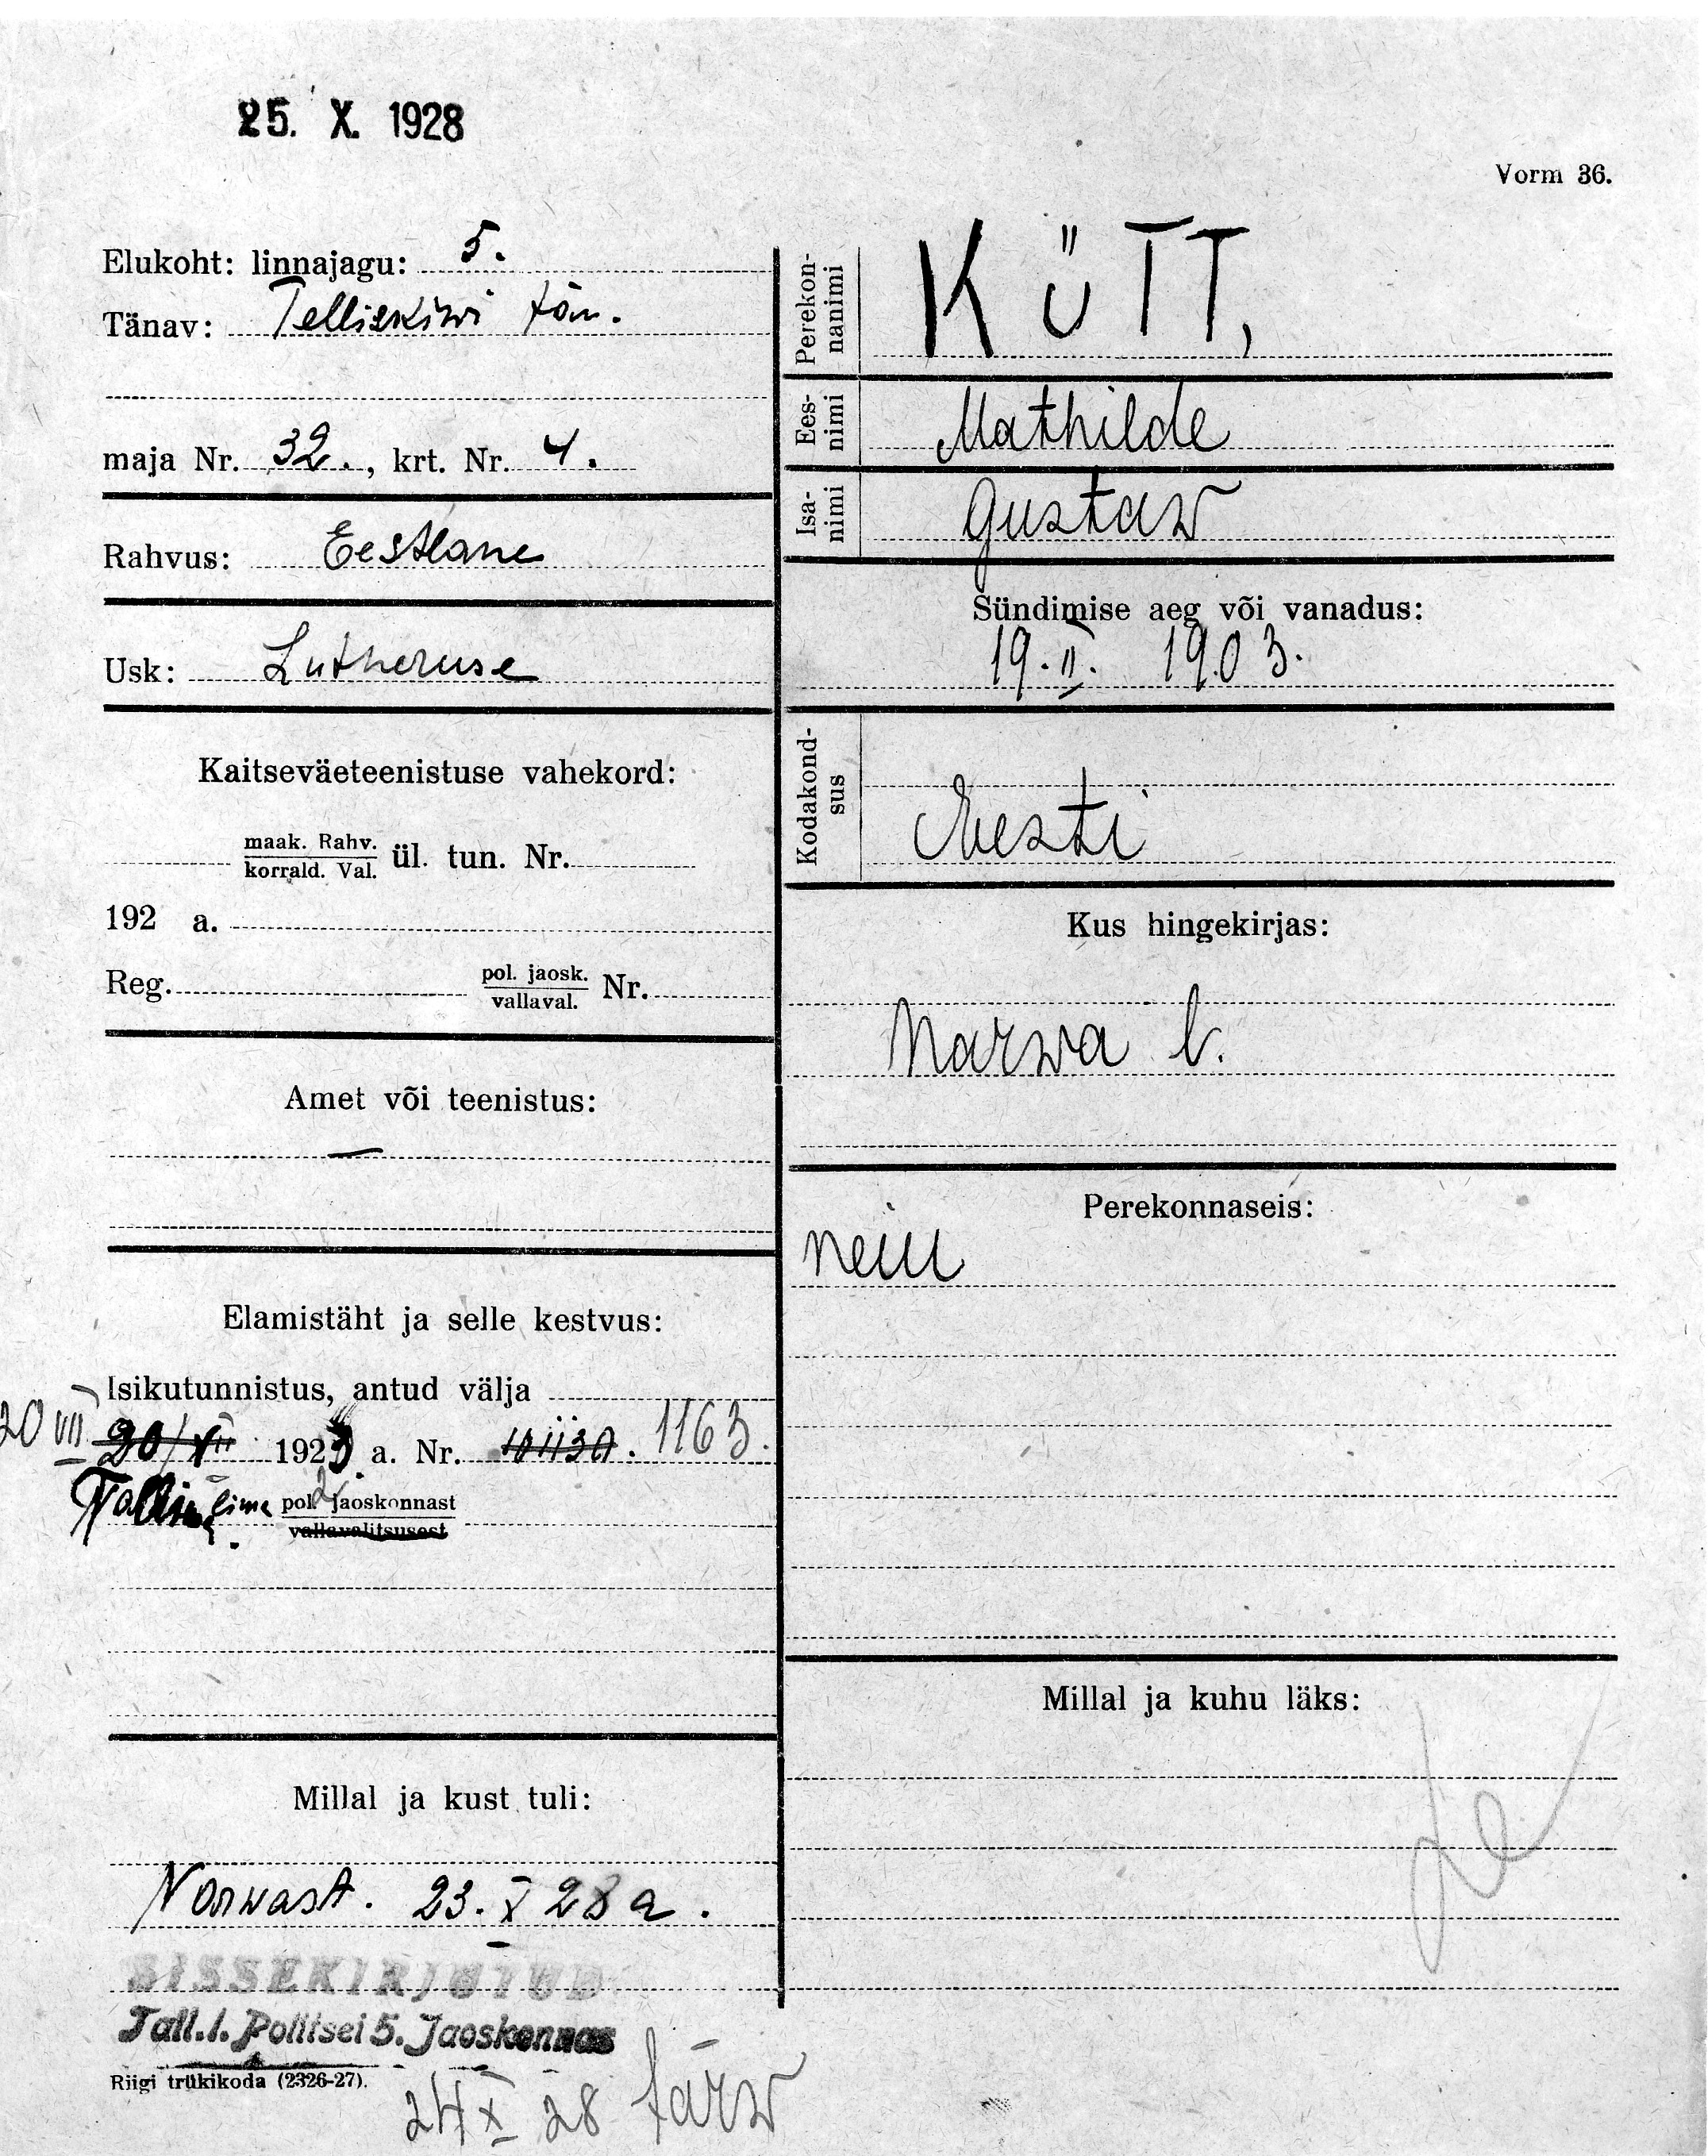 25. X. 1928
Vorm 36.
Elukoht: linnajagu: 5.
Tänav: Telliskiwi tän.
maja Nr. 32., krt. Nr. 4.
Rahvus: Eestlane
Usk: Lutheruse
Kaitseväeteenistuse vahekord:
maak. Rahv.
korrald. Val. ül. tun. Nr.
192 a.
Reg. pol. jaosk.
vallaval. Nr.
Amet või teenistus:
—
Elamistäht ja selle kestvus:
Isikutunnistus, antud välja
20 VII 20/XII 1923 a. Nr. 1163.
linna pol. 2 jaoskonnast
vallavalitsusest
Millal ja kust tuli:
Narwast. 23. X 28 a.
SISSEKIRJUTUD
Tall. l. Politsei 5. Jaoskonnas
Riigi trükikoda (2326-27).
24 X 28 Järw
Perekon-
nanimi KÜTT,
Ees-
nimi Mathilde
Isa-
nimi Gustaw
Sündimise aeg või vanadus:
19. II. 1903.
Kodakond-
sus Eesti
Kus hingekirjas:
Narwa l.
Perekonnaseis:
neiu
Millal ja kuhu läks: